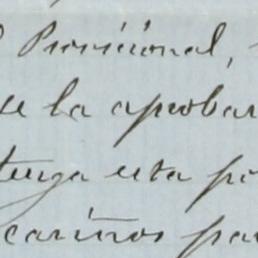 Provicional,
la aprobar
tenga esta
cariños pa